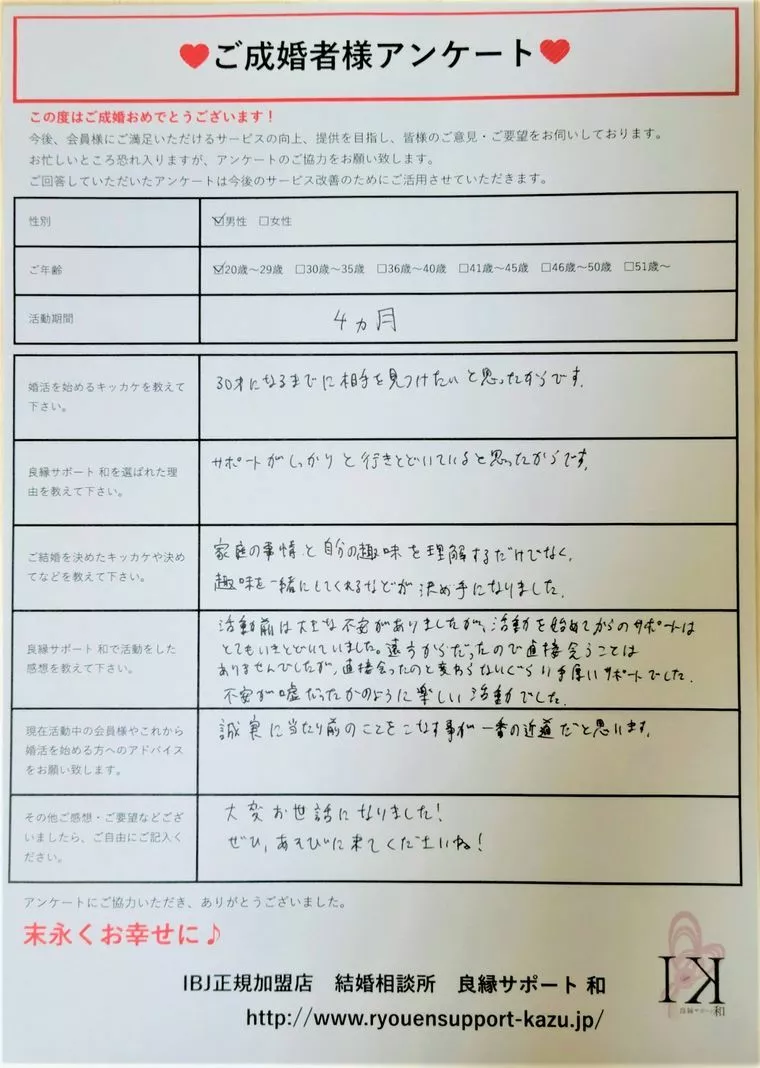 ♥ご成婚者様アンケート♥
この度はご成婚おめでとうございます！
今後、会員様にご満足いただけるサービスの向上、提供を目指し、皆様のご意見・ご要望をお伺いしております。
お忙しいところ恐れ入りますが、アンケートのご協力をお願い致します。
ご回答していただいたアンケートは今後のサービス改善のためにご活用させていただきます。
性別
☑男性 □女性
ご年齢
☑20歳～29歳 □30歳～35歳 □36歳～40歳 □41歳～45歳 □46歳～50歳 □51歳～
活動期間
4ヵ月
婚活を始めるキッカケを教えて
下さい。
30才になるまでに相手を見つけたいと思ったからです。
良縁サポート 和を選ばれた理
由を教えて下さい。
サポートがしっかりと行きとどいていると思ったからです。
ご結婚を決めたキッカケや決め
てなどを教えて下さい。
家庭の事情と自分の趣味を理解するだけでなく、
趣味を一緒にしてくれるなどが決め手になりました。
良縁サポート 和で活動をした
感想を教えて下さい。
活動前は大きな不安がありましたが、活動を始めてからのサポートは
とてもいきとどいていました。遠方からだったので直接会うことは
ありませんでしたが、直接会ったのと変わらないぐらい手厚いサポートでした。
不安が嘘だったかのように楽しい活動でした。
現在活動中の会員様やこれから
婚活を始める方へのアドバイス
をお願い致します。
誠実に当たり前のことをこなす事が一番の近道だと思います。
その他ご感想・ご要望などござ
いましたら、ご自由にご記入く
ださい。
大変お世話になりました！
ぜひ、あそびに来てくださいね！
アンケートにご協力いただき、ありがとうございました。
末永くお幸せに♪
IBJ正規加盟店 結婚相談所 良縁サポート 和
http://www.ryouensupport-kazu.jp/
KI
良縁サポート和